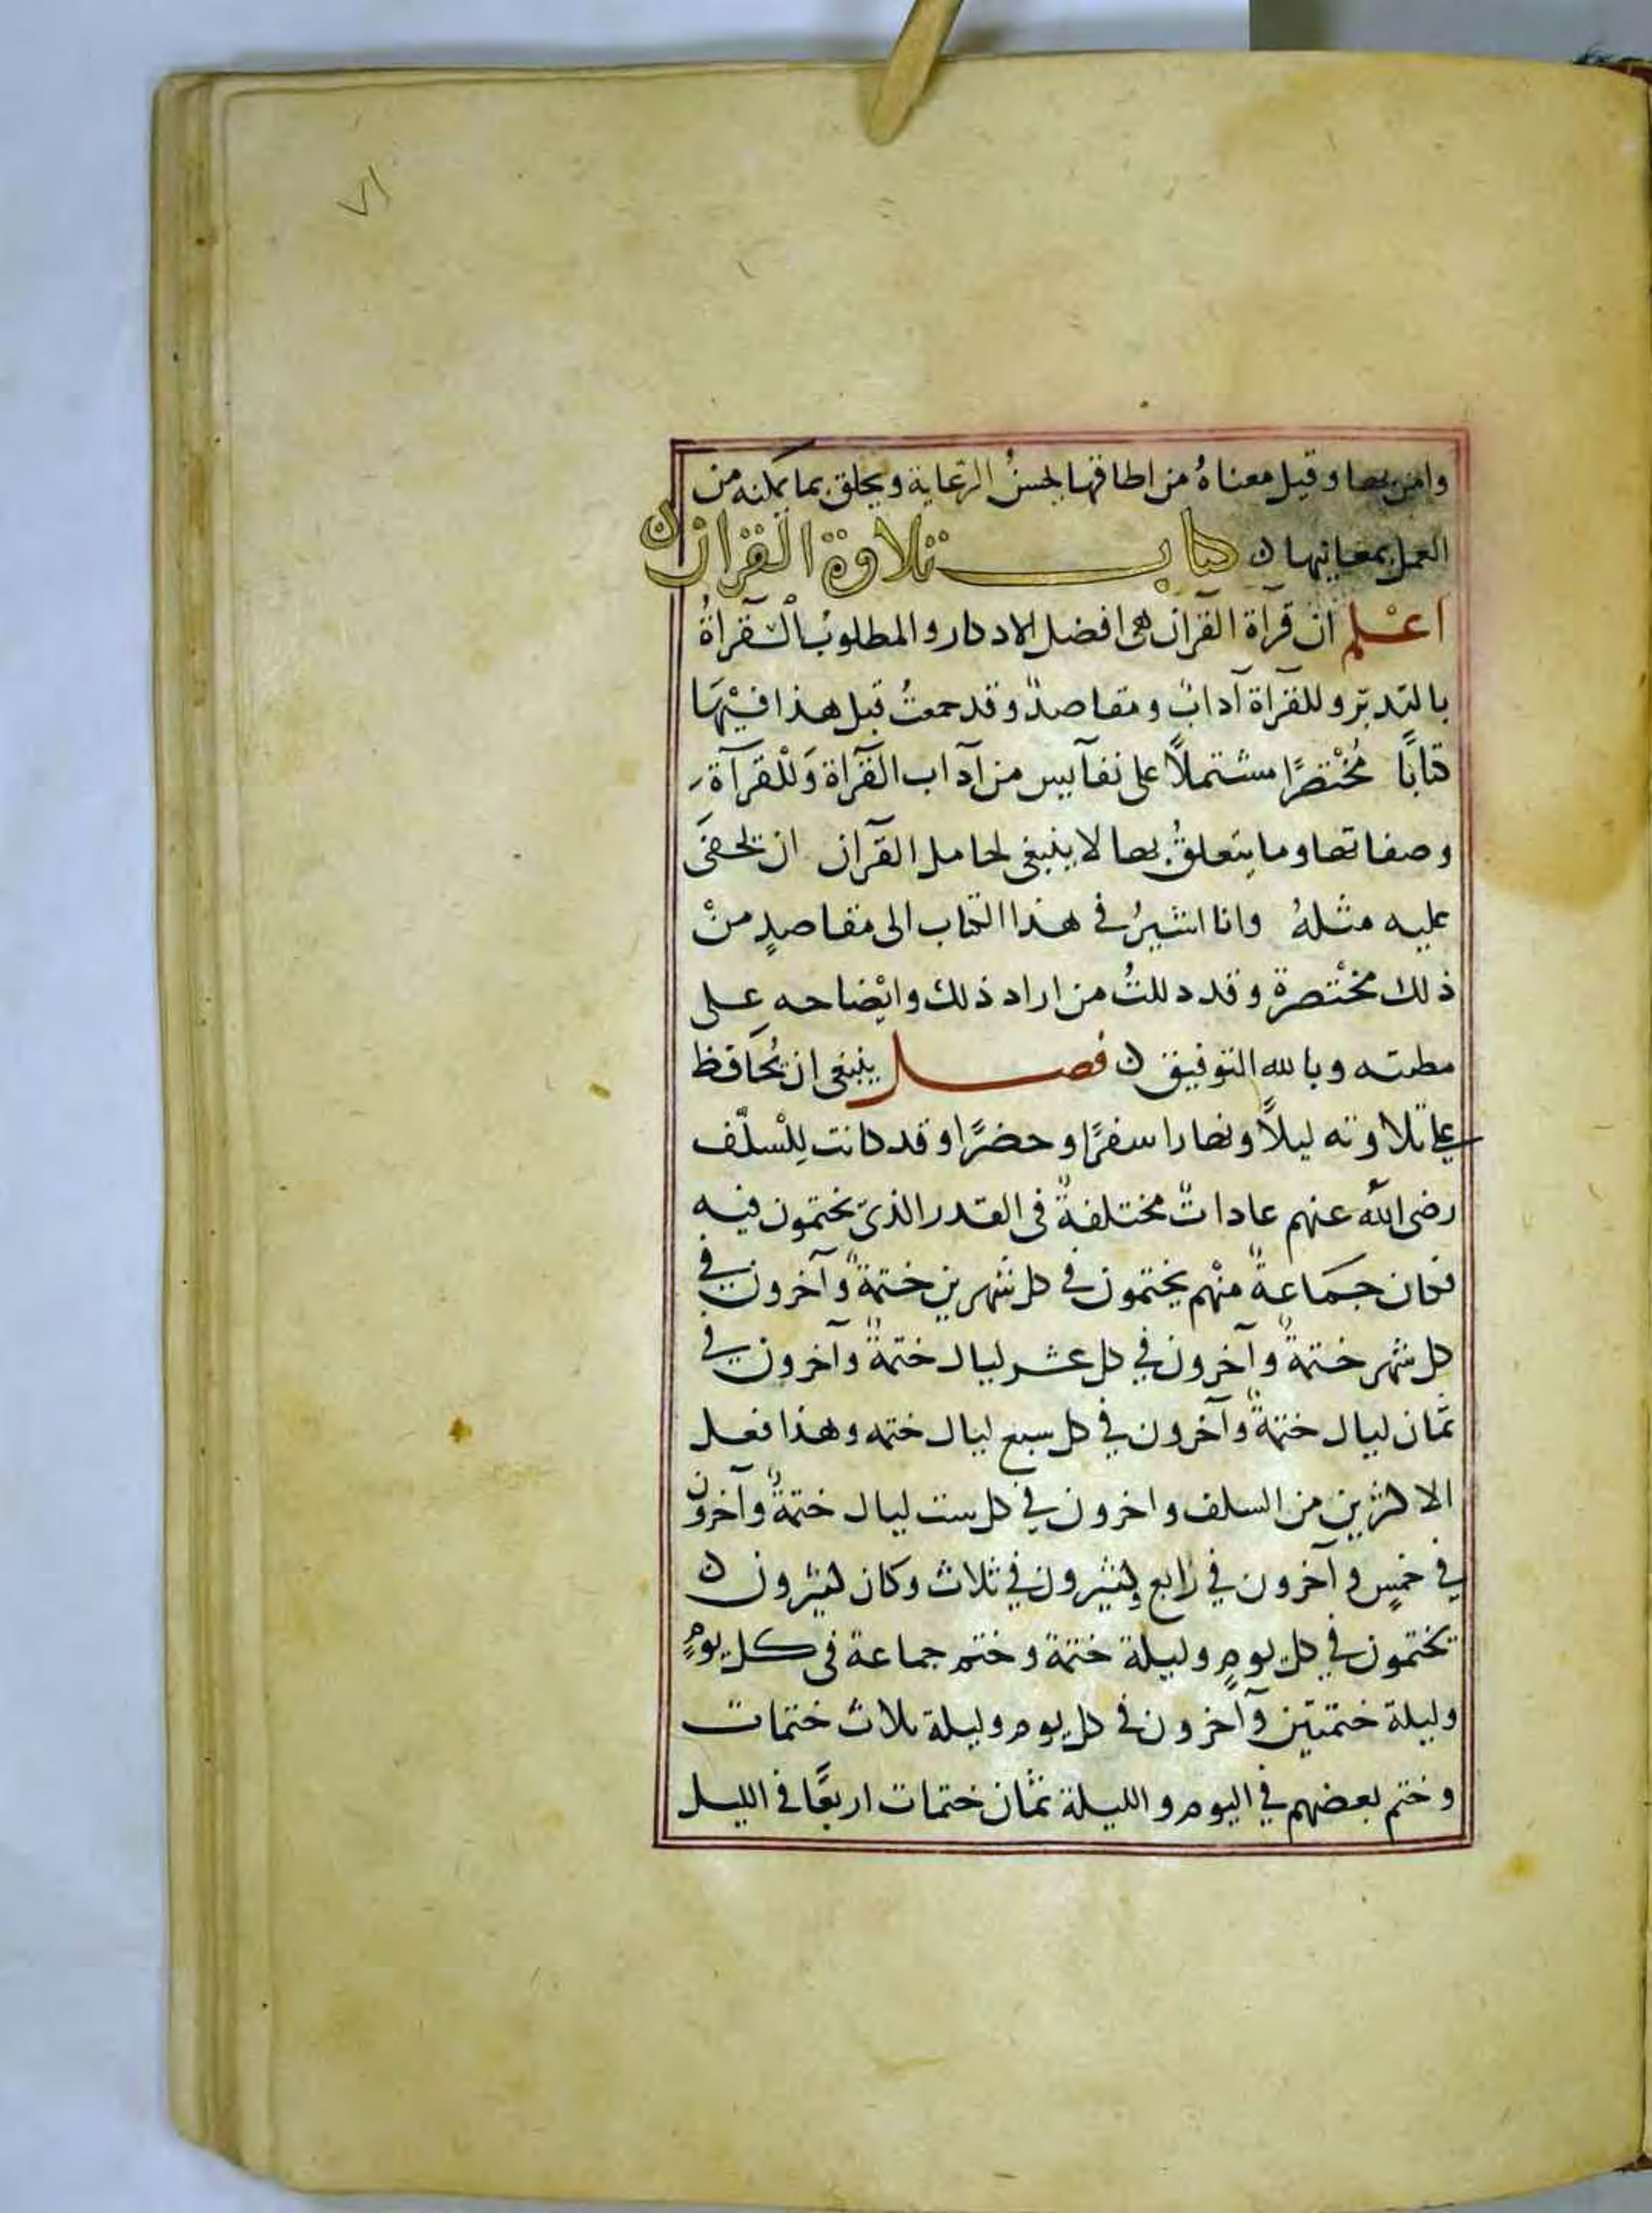 ٧١
وامن بها وقيل معناهُ من اطاقها لحسنُ الرّعاية ويخلق بما يمكنه من
العمل بمعانيها ن كتاب تلاوة القران ن
اعْلم ان قرآة القرآن هى افضل الاذكار والمطلوبُ الْقرآةُ
بالتدبّر وللقرآة آدابٌ ومقاصدٌ وقد جمعتُ قبل هذا فيْهَا
كتابًا مُخْتصرًا مشتملاً على نفآيس من آداب القرآة وَللْقرآة
وصفاتها وما يتعلقُ بها لا ينبغى لحامل القرآن ان يخفَى
عليه مثلهُ وانا اشيرُ فى هذا الكتاب الى مقاصدٍ منْ
ذلك مخْتصرة وقد دللتُ من اراد ذلك وايْضاحه على
مظنته وبالله التوفيق ن فصل ينبغى ان يُحَافظ
على تلاوته ليلاً ونهارا سفرًا وحضرًا وقد كانت لِلْسلّف
رضى الله عنهم عاداتٌ مختلفةٌ فى القدر الذى يختمون فيه
فكان جمَاعةٌ منْهم يختمون فى كل شهرين ختمةً وآخرون فى
كل شهر ختمةً وآخرون فى كل عشر ليال ختمةً وآخرون فى
ثمان ليال ختمةً وآخرون فى كل سبع ليال ختمه وهذا فعل
الاكثرين من السلف واخرون فى كل ست ليال ختمةً وآخرون
فى خمسٍ وآخرون فى رابع وكثيرون فى ثلاث وكان كثيرون ن
يختمون فى كل يومٍ وليلة ختمة وختم جماعة فى كل يومٍ
وليلة ختمتين وآخرون فى كل يوم وليلة ثلاث ختمات
وختم بعضهم فى اليوم والليلة ثمان ختمات اربعًا فى الليل